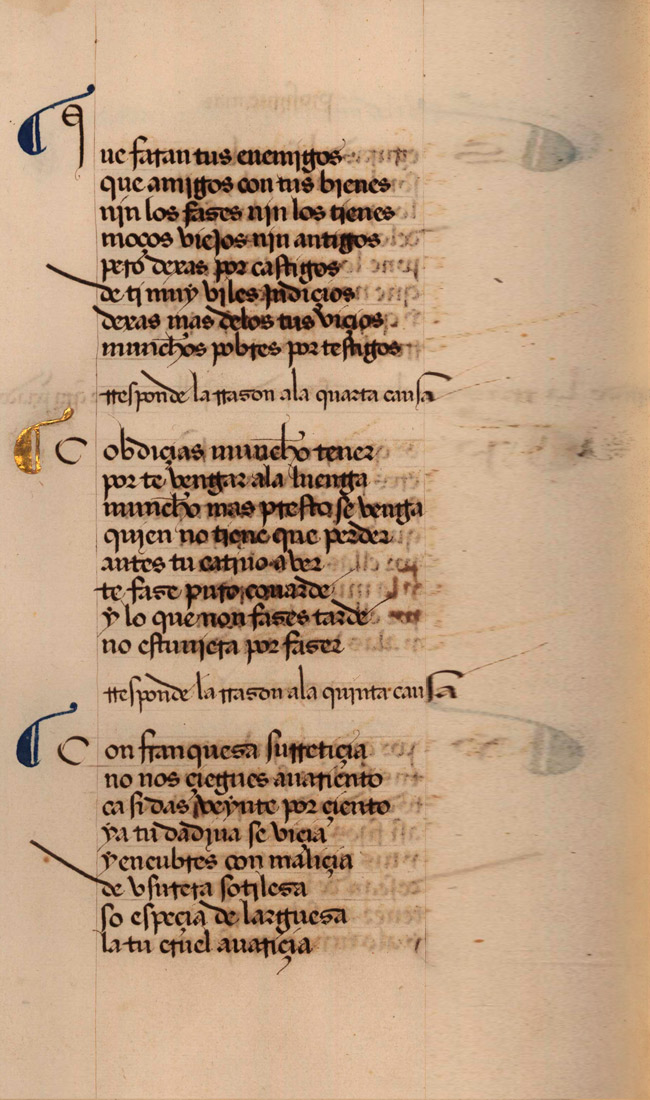 Que faran tus enemigos
que amigos con tus bienes
nin los fases nin los tienes
moços viejos nin antigos
pero dexas por castigos
de ti muy viles Indiçios
dexas mas delos tus viçios
munchos pobres por testigos
rresponde la rrason ala quarta causa
Cobdiçias muncho tener
por te vengar ala luenga
muncho mas presto se venga
quien no tiene que perder
antes tu catiuo aver
te fase puro couarde
y lo que non fases tarde
no estuuiera por faser
rresponde la rrason ala quinta causa
Con franquesa surretiçia
no nos çiegues auariento
ca si das veynte por çiento
ya tu dadiua se viçia
y encubres con maliçia
de vsurera sotilesa
so espeçia de larguesa
la tu cruel auariçia